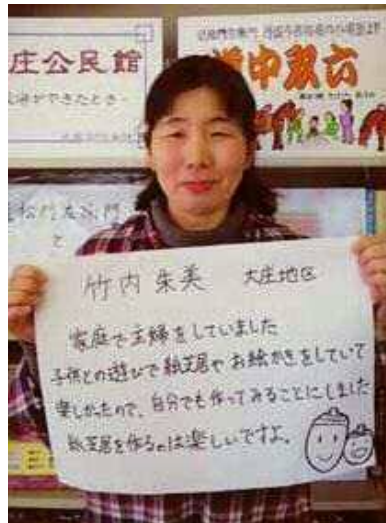 庄公民館
ができたとき
道中双六
松門左衛門
と
竹内朱美 大庄地区
家庭で主婦をしていました
子供との遊びで紙芝居や お絵かきをしていて
楽しかったので、自分でも作ってみることにしました
紙芝居を作るのは楽しいですよ。